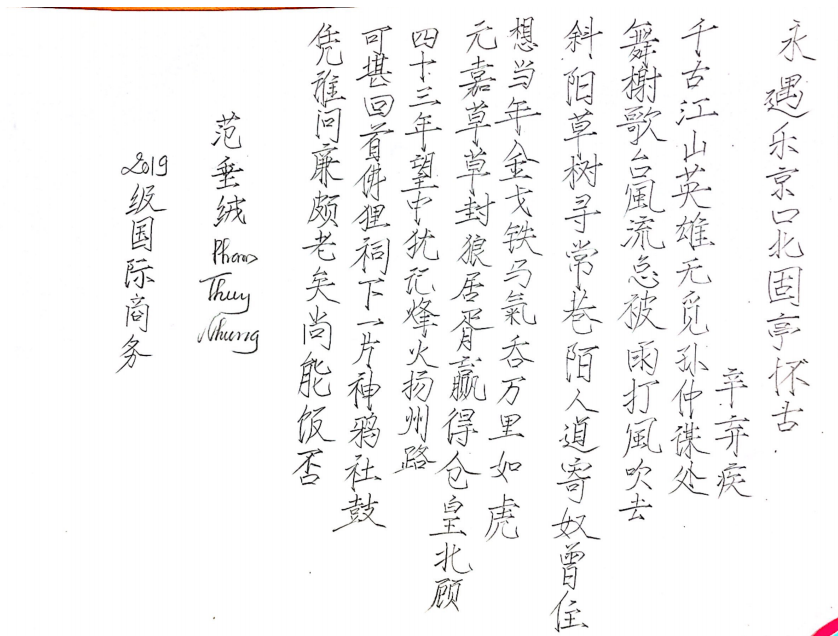 永遇乐京口北固亭怀古
辛弃疾
千古江山英雄无觅孙仲谋处
舞榭歌台風流总被雨打風吹去
斜阳草树寻常巷陌人道寄奴曾住
想当年金戈铁马氣吞万里如虎
元嘉草草封狼居胥赢得仓皇北顾
四十三年望中犹记烽火扬州路
可堪回首佛狸祠下一片神鸦社鼓
凭谁问廉颇老矣尚能饭否
范垂绒 Pham Thuy Nhung
2019级国际商务